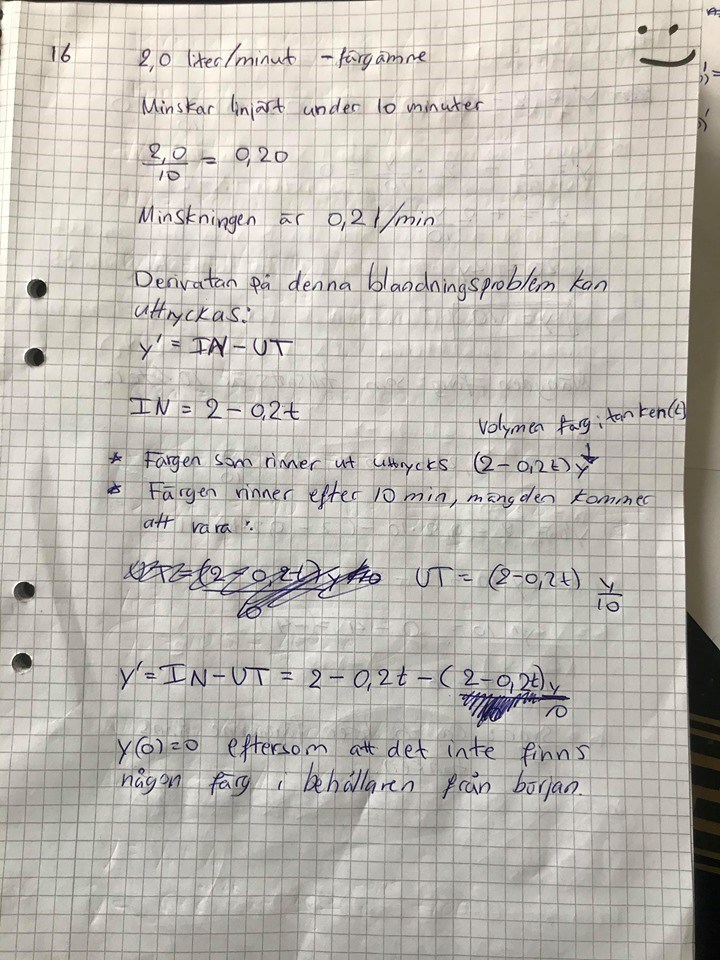 16 2,0 liter/minut - färgämne
Minskar linjärt under 10 minuter
2,0/10 = 0,20
Minskningen är 0,2 l/min
Derivatan på denna blandningsproblem kan
uttryckas:
y' = IN - UT
IN = 2 - 0,2t
Volymen färg i tanken(t)
* Färgen som rinner ut uttrycks (2-0,2t)y
* Färgen rinner efter 10 min, mängden kommer
att vara:
UT = (2-0,2t) y/10
y' = IN - UT = 2 - 0,2t - (2-0,2t)y/10
y(0)=0 eftersom att det inte finns
någon färg i behållaren från början.